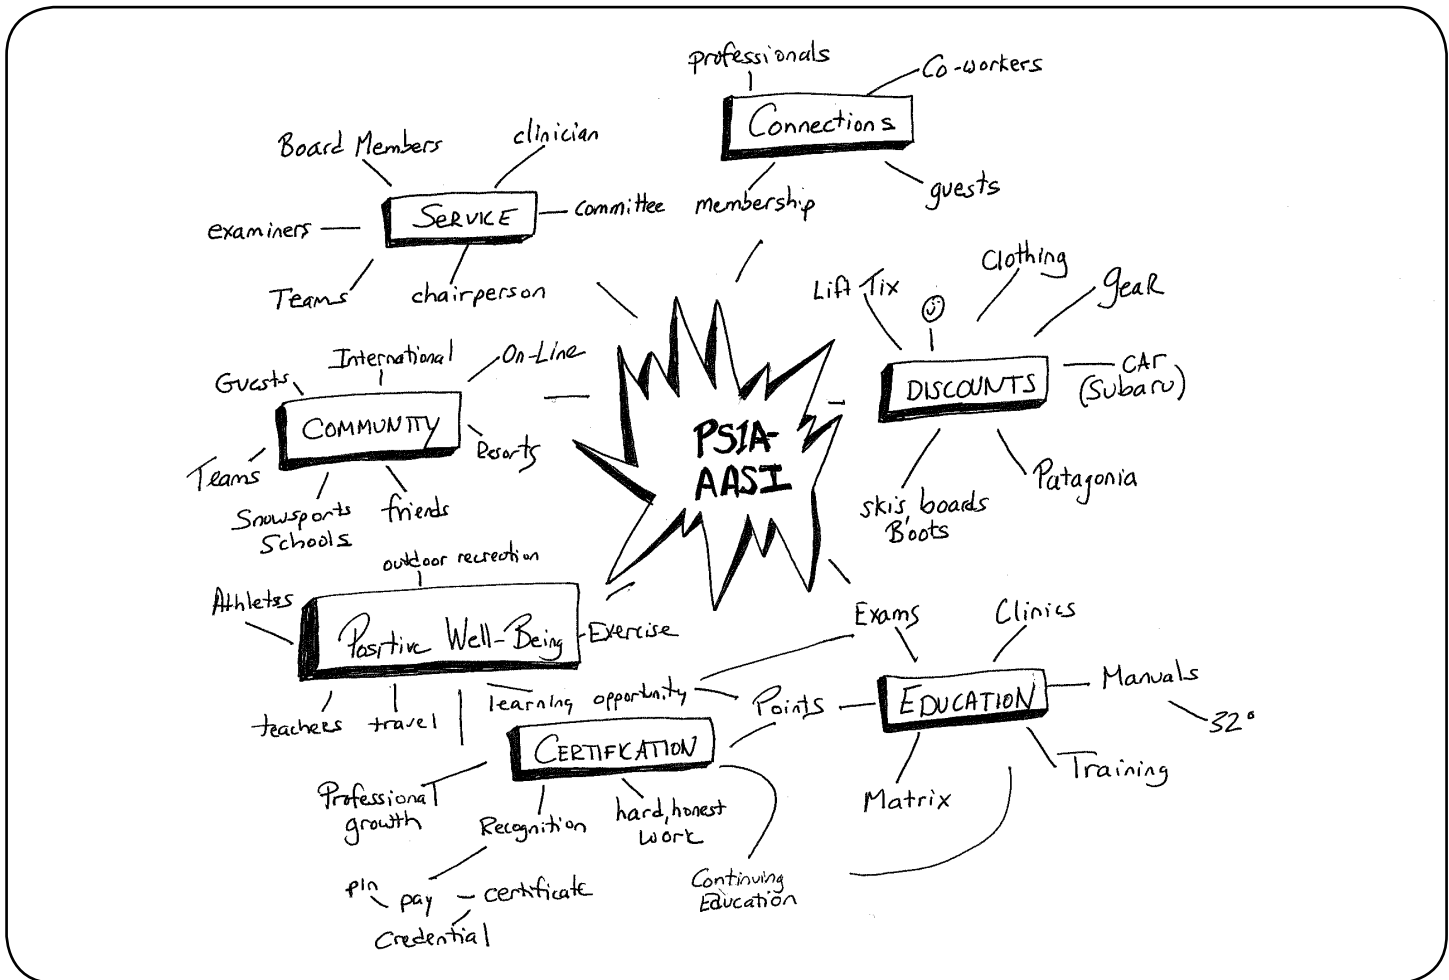 professionals
Co-workers
Connections
membership
guests
Board Members
clinician
SERVICE
committee
examiners
Teams
chairperson
Lift Tix
Clothing
geaR
DISCOUNTS
CAr
(Subaru)
skis, boards
Boots
Patagonia
International
On-Line
Guests
COMMUNITY
Resorts
Teams
Snowsports
Schools
friends
PSIA-
AASI
outdoor recreation
Athletes
Positive Well-Being
Exercise
teachers
travel
learning opportunity
Exams
Clinics
Points
EDUCATION
Manuals
32°
Matrix
Training
CERTIFICATION
Professional
growth
Recognition
hard, honest
work
pin
pay
certificate
Credential
Continuing
Education